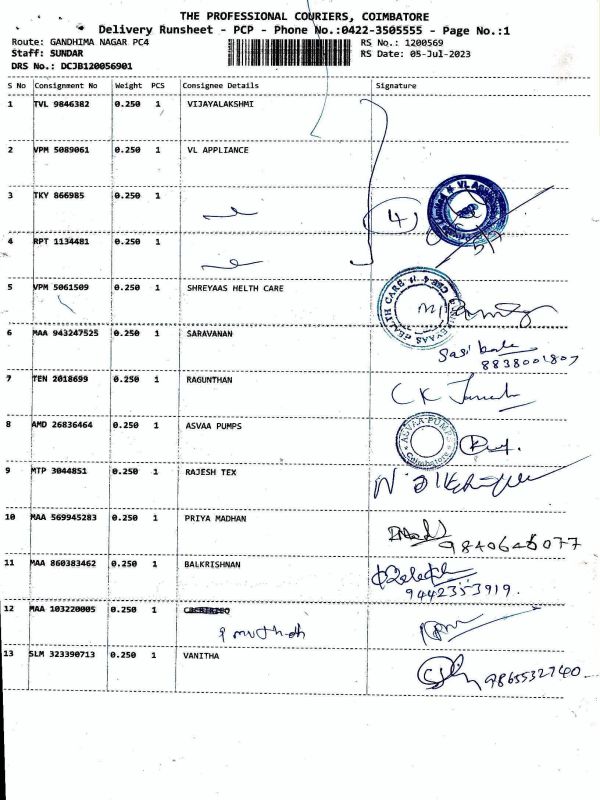 THE PROFESSIONAL COURIERS, COIMBATORE
Delivery Runsheet - PCP - Phone No.:0422-3505555 - Page No.:1
Route: GANDHIMA NAGAR PC4
RS No.: 1200569
Staff: SUNDAR
RS Date: 05-Jul-2023
DRS No.: DCJB120056901
S No Consignment No Weight PCS Consignee Details Signature
1 TVL 9846382 0.250 1 VIJAYALAKSHMI
2 VPM 5089061 0.250 1 VL APPLIANCE
3 TKY 866985 0.250 1
4
4 RPT 1134481 0.250 1
5 VPM 5061509 0.250 1 SHREYAAS HELTH CARE
6 MAA 943247525 0.250 1 SARAVANAN
8838001807
7 TEN 2018699 0.250 1 RAGUNTHAN
8 AMD 26836464 0.250 1 ASVAA PUMPS
ASVAA PUMPS
Coimbatore
9 MTP 3044851 0.250 1 RAJESH TEX
10 MAA 569945283 0.250 1 PRIYA MADHAN
11 MAA 860383462 0.250 1 BALKRISHNAN
9442353919.
12 MAA 103220005 0.250 1
13 SLM 323390713 0.250 1 VANITHA
9865532740